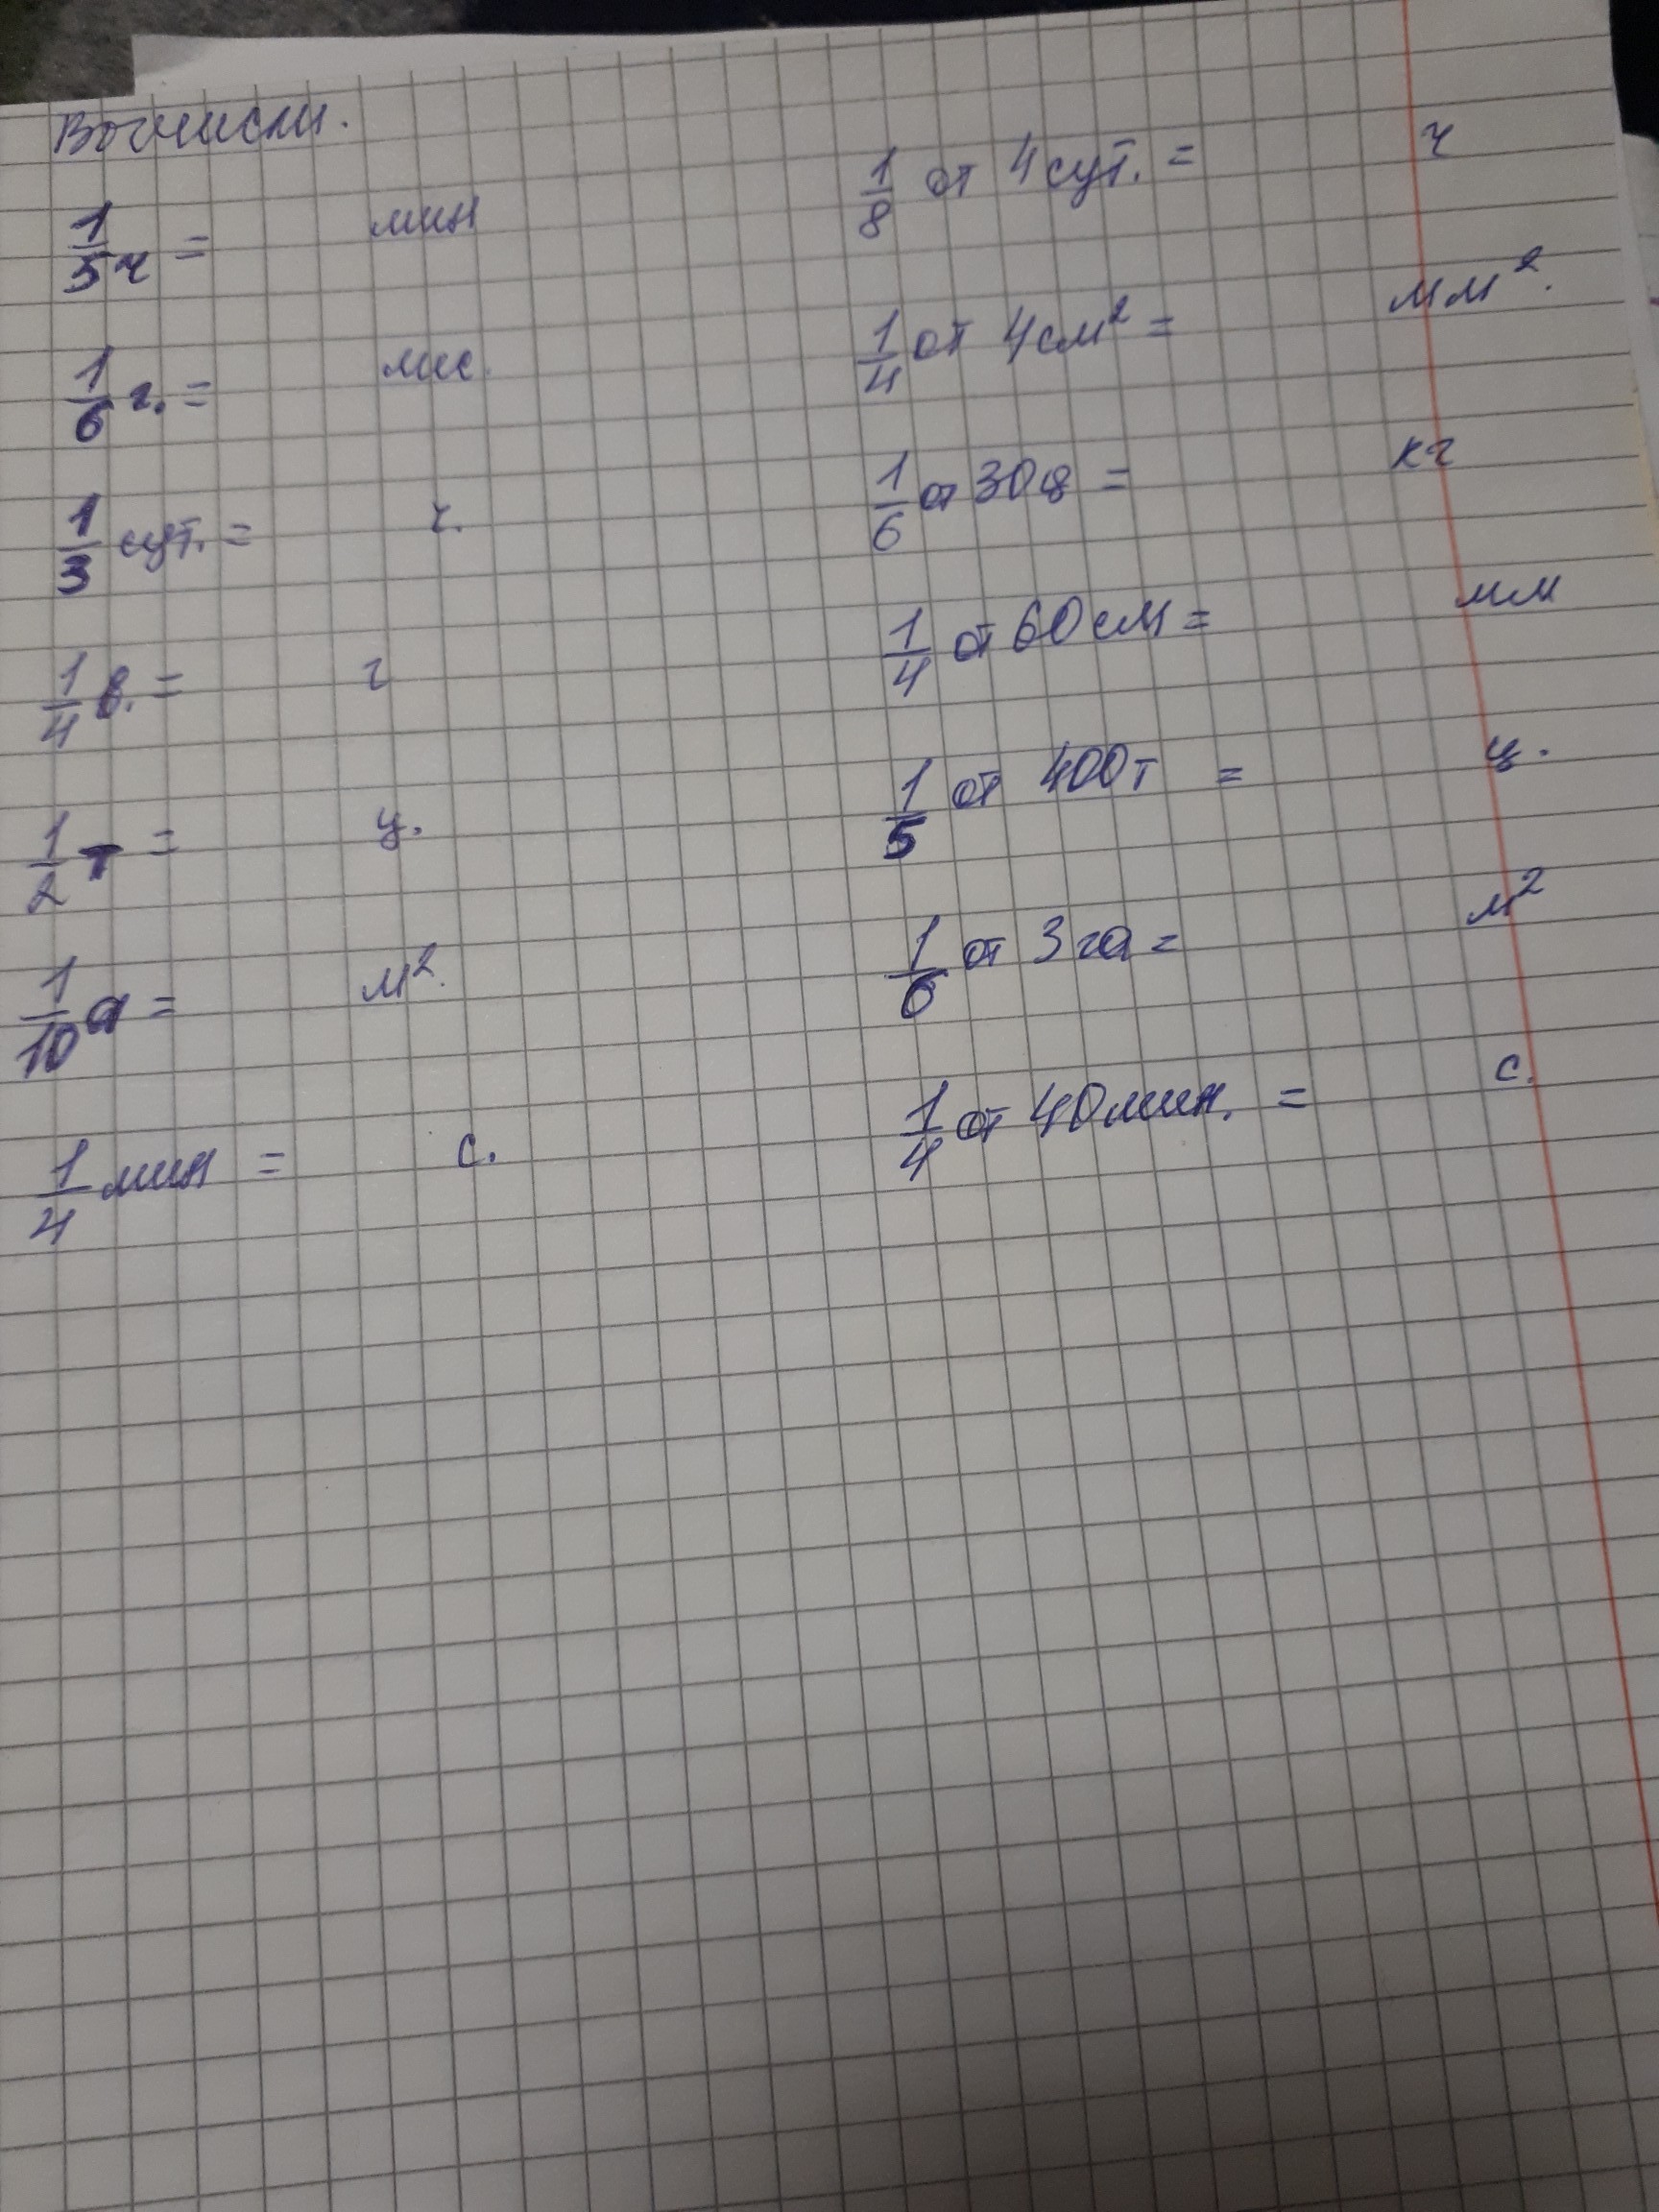 Вычисли.
1/5 ч = мин
1/6 г. = мес.
1/3 сут. = ч.
1/4 в. = г
1/2 т = ц.
1/10 а = м².
1/4 мин = с.
1/8 от 4 сут. = ч
1/4 от 4 см² = мм².
1/6 от 30 ц = кг
1/4 от 60 см = мм
1/5 от 400 т = ц.
1/6 от 3 га = м²
1/4 от 40 мин. = с.